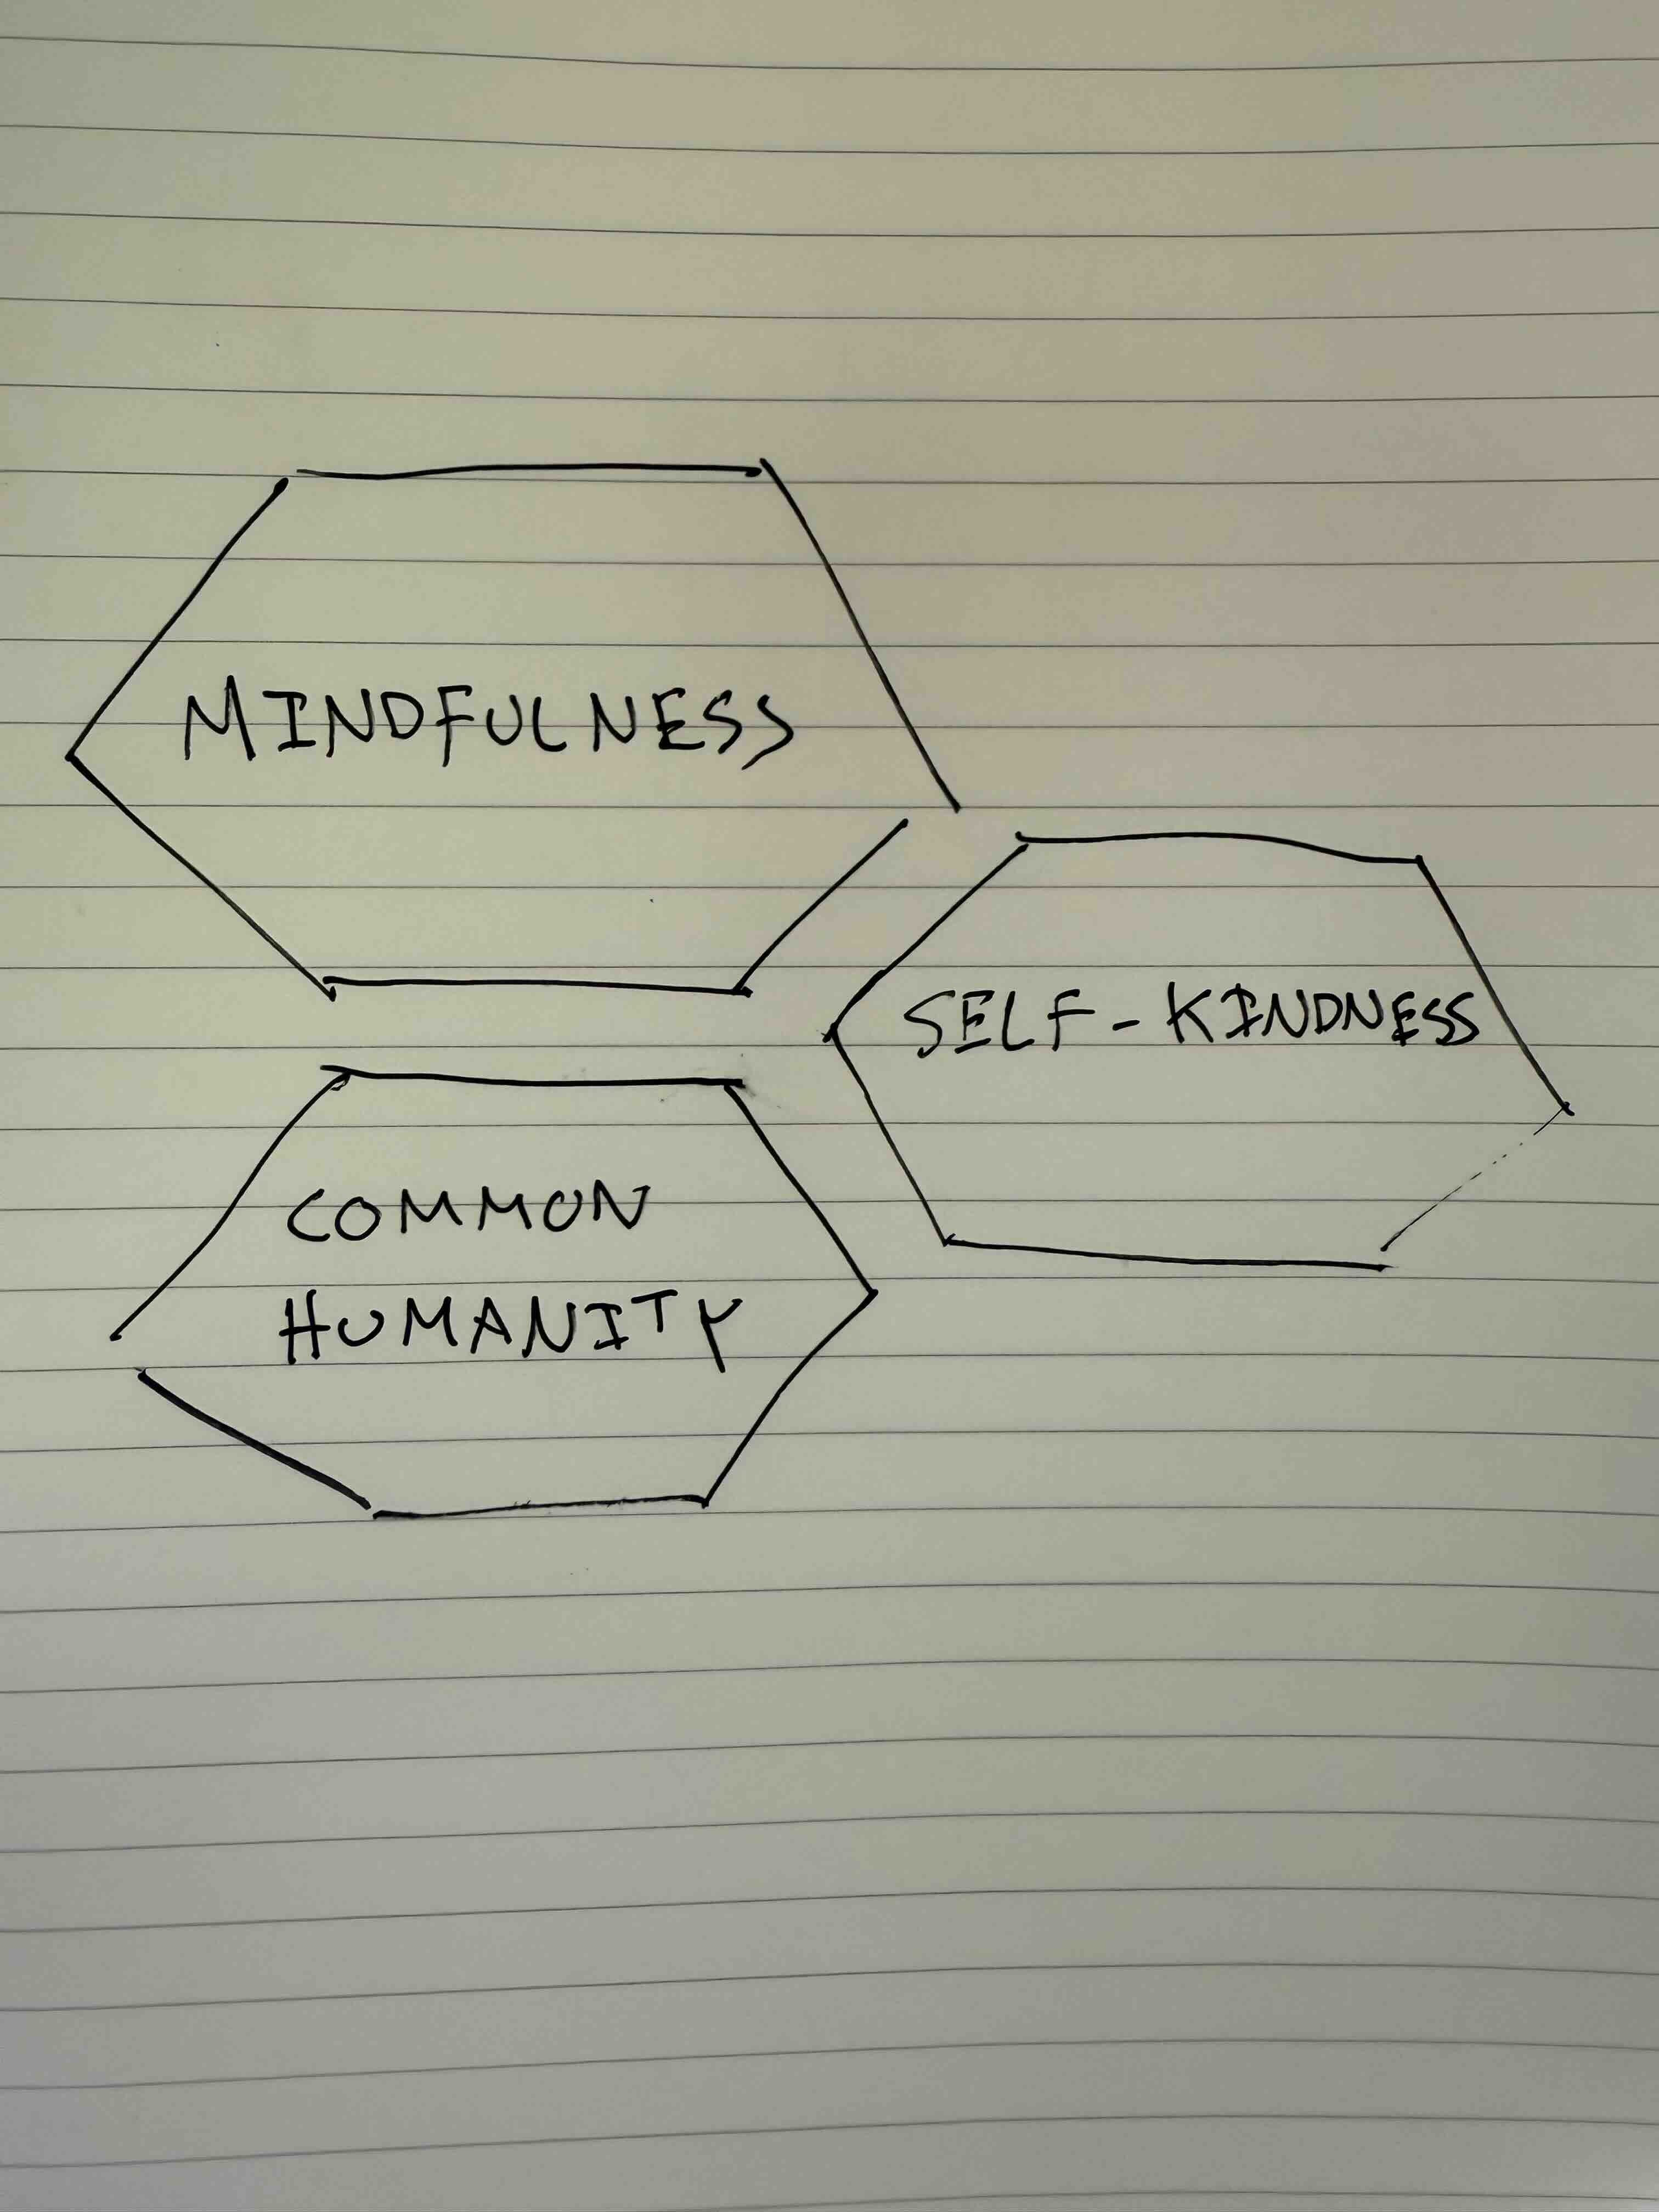 MINDFULNESS
SELF-KINDNESS
COMMON
HUMANITY